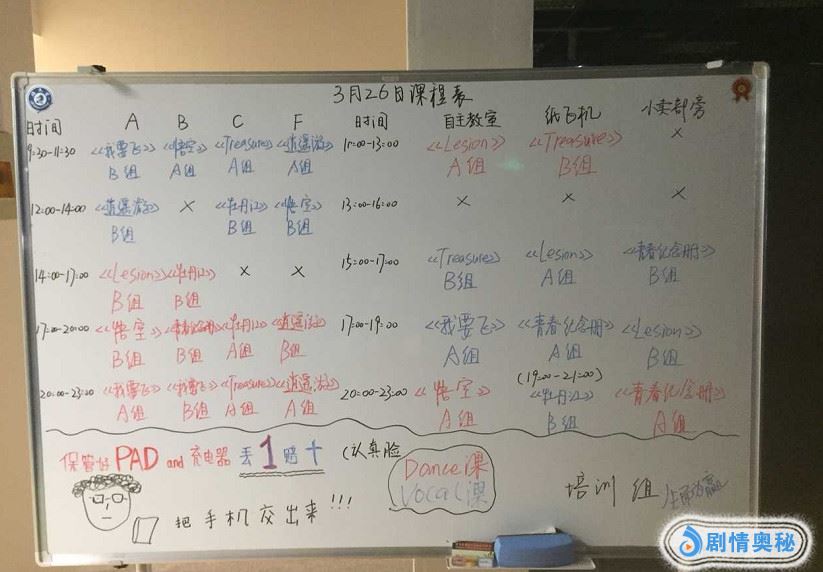 3月26日课程表
时间 A B C F 时间 自主教室 纸飞机 小卖部旁
9:30-11:30 《我要飞》 《悟空》 《Treasure》 《逍遥游》 11:00-13:00 《Lesion》 《Treasure》 ×
B组 A组 A组 A组 A组 B组
12:00-14:00 《逍遥游》 × 《牡丹江》 《悟空》 13:00-16:00 × × ×
B组 B组 B组
14:00-17:00 《Lesion》 《牡丹江》 × × 15:00-17:00 《Treasure》 《Lesion》 《青春纪念册》
B组 B组 B组 A组 B组
17:00-20:00 《悟空》 《青春纪念册》 《牡丹江》 《逍遥游》 17:00-19:00 《我要飞》 《青春纪念册》 《Lesion》
B组 B组 A组 B组 A组 A组 B组
(19:00-21:00)
20:00-23:00 《我要飞》 《我要飞》 《Treasure》 《逍遥游》 20:00-23:00 《悟空》 《牡丹江》 《青春纪念册》
A组 B组 A组 A组 A组 B组 A组
保管好 PAD and 充电器 丢1赔十 (认真脸
Dance课
Vocal课
把手机交出来!!!
培训组
剧情奥秘